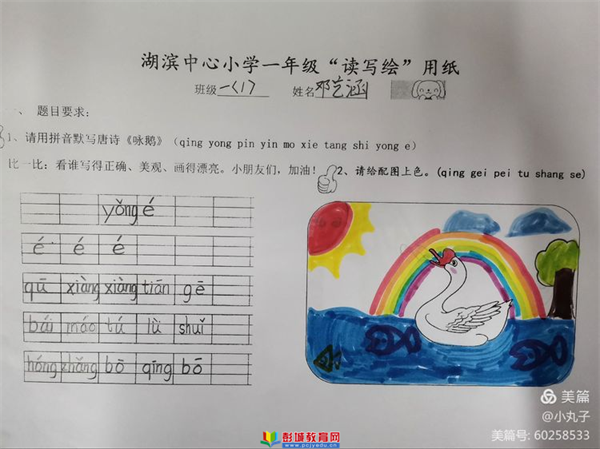 湖滨中心小学一年级“读写绘”用纸
班级一(17) 姓名邓艺涵
一、题目要求：
1、请用拼音默写唐诗《咏鹅》（qing yong pin yin mo xie tang shi yong e）
比一比：看谁写得正确、美观、画得漂亮。小朋友们，加油！ 2、请给配图上色。(qing gei pei tu shang se)
yǒng é
é é é
qū xiàng xiàng tiān gē
bái máo tú lù shuǐ
hóng zhǎng bō qīng bō
美篇
@小丸子
美篇号: 60258533
彭城教育网
www.pcjyedu.cn